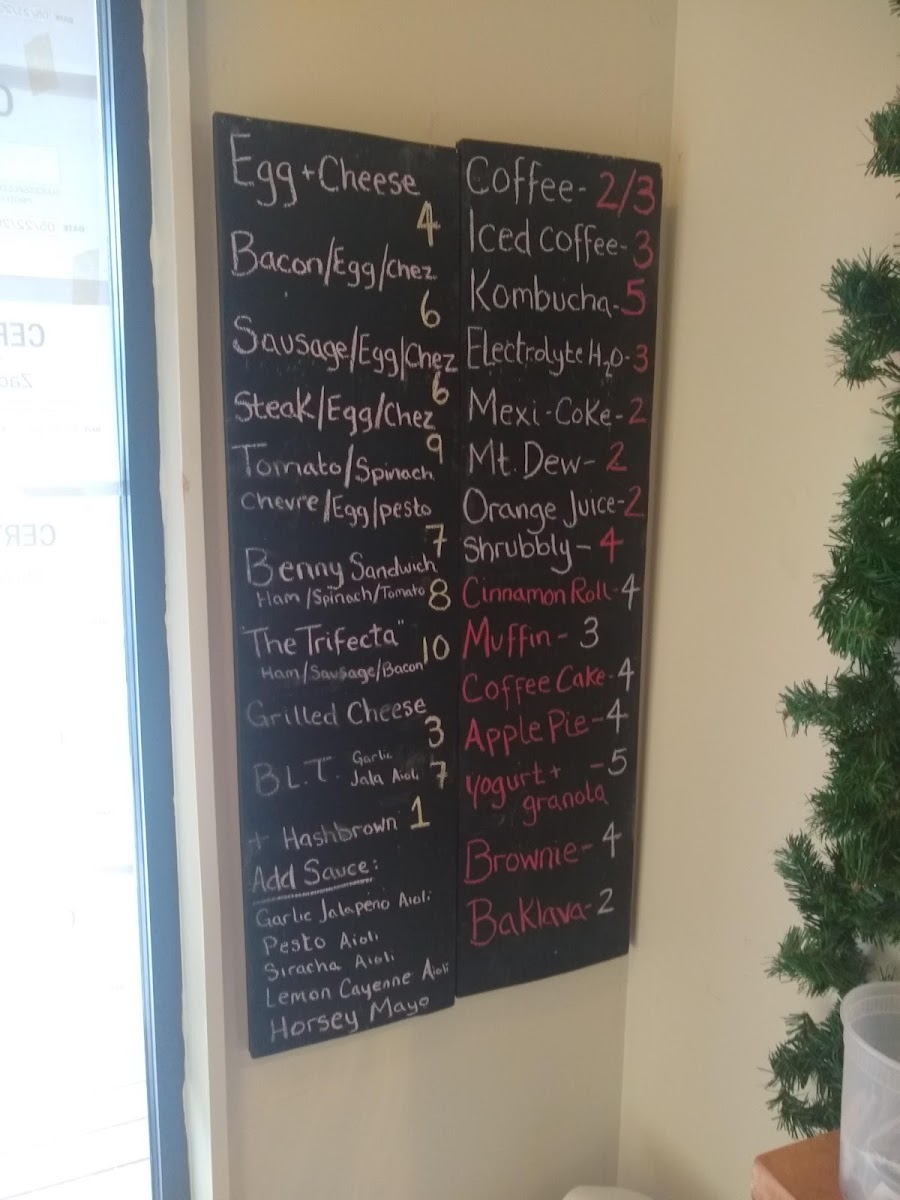 Egg + Cheese
4
Bacon/Egg/Chez
6
Sausage/Egg/Chez
6
Steak/Egg/Chez
9
Tomato/Spinach
Chevre/Egg/pesto
7
Benny Sandwich
Ham/Spinach/Tomato 8
"The Trifecta" 10
Ham/Sausage/Bacon
Grilled Cheese
3
B.L.T. Garlic
Jala Aioli 7
+ Hashbrown 1
Add Sauce:
Garlic Jalapeno Aioli
Pesto Aioli
Siracha Aioli
Lemon Cayenne Aioli
Horsey Mayo
Coffee - 2/3
Iced Coffee - 3
Kombucha - 5
Electrolyte H2O - 3
Mexi-Coke - 2
Mt. Dew - 2
Orange Juice - 2
Shrubbly - 4
Cinnamon Roll - 4
Muffin - 3
Coffee Cake - 4
Apple Pie - 4
Yogurt + - 5
granola
Brownie - 4
Baklava - 2